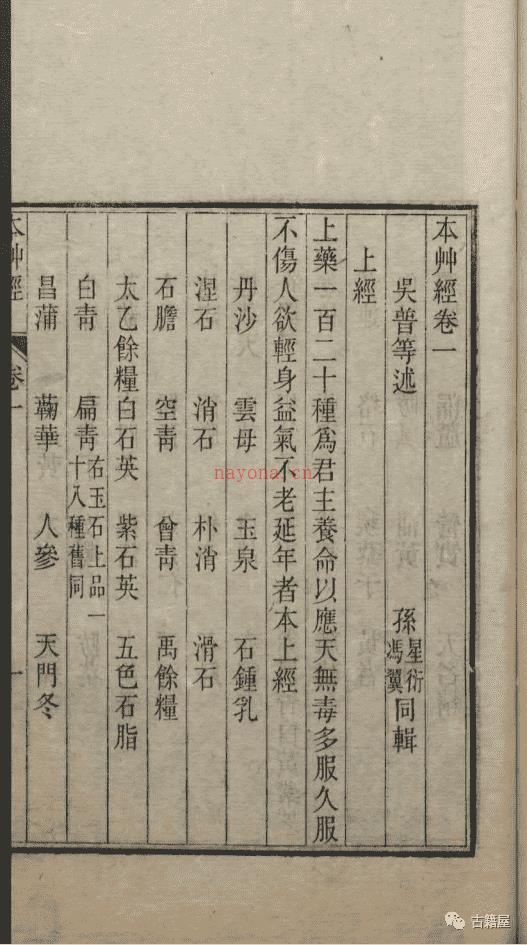 本艸經卷一
吳普等述 孫星衍馮翼同輯
上經
上藥一百二十種爲君主養命以應天無毒多服久服
不傷人欲輕身益氣不老延年者本上經
丹沙 雲母 玉泉 石鍾乳
涅石 消石 朴消 滑石
石膽 空青 曾青 禹餘糧
太乙餘糧 白石英 紫石英 五色石脂
白青 扁青 右玉石上品一十八種舊同
昌蒲 蘜華 人參 天門冬
本艸經 卷一 一
nayona.cn
古籍屋